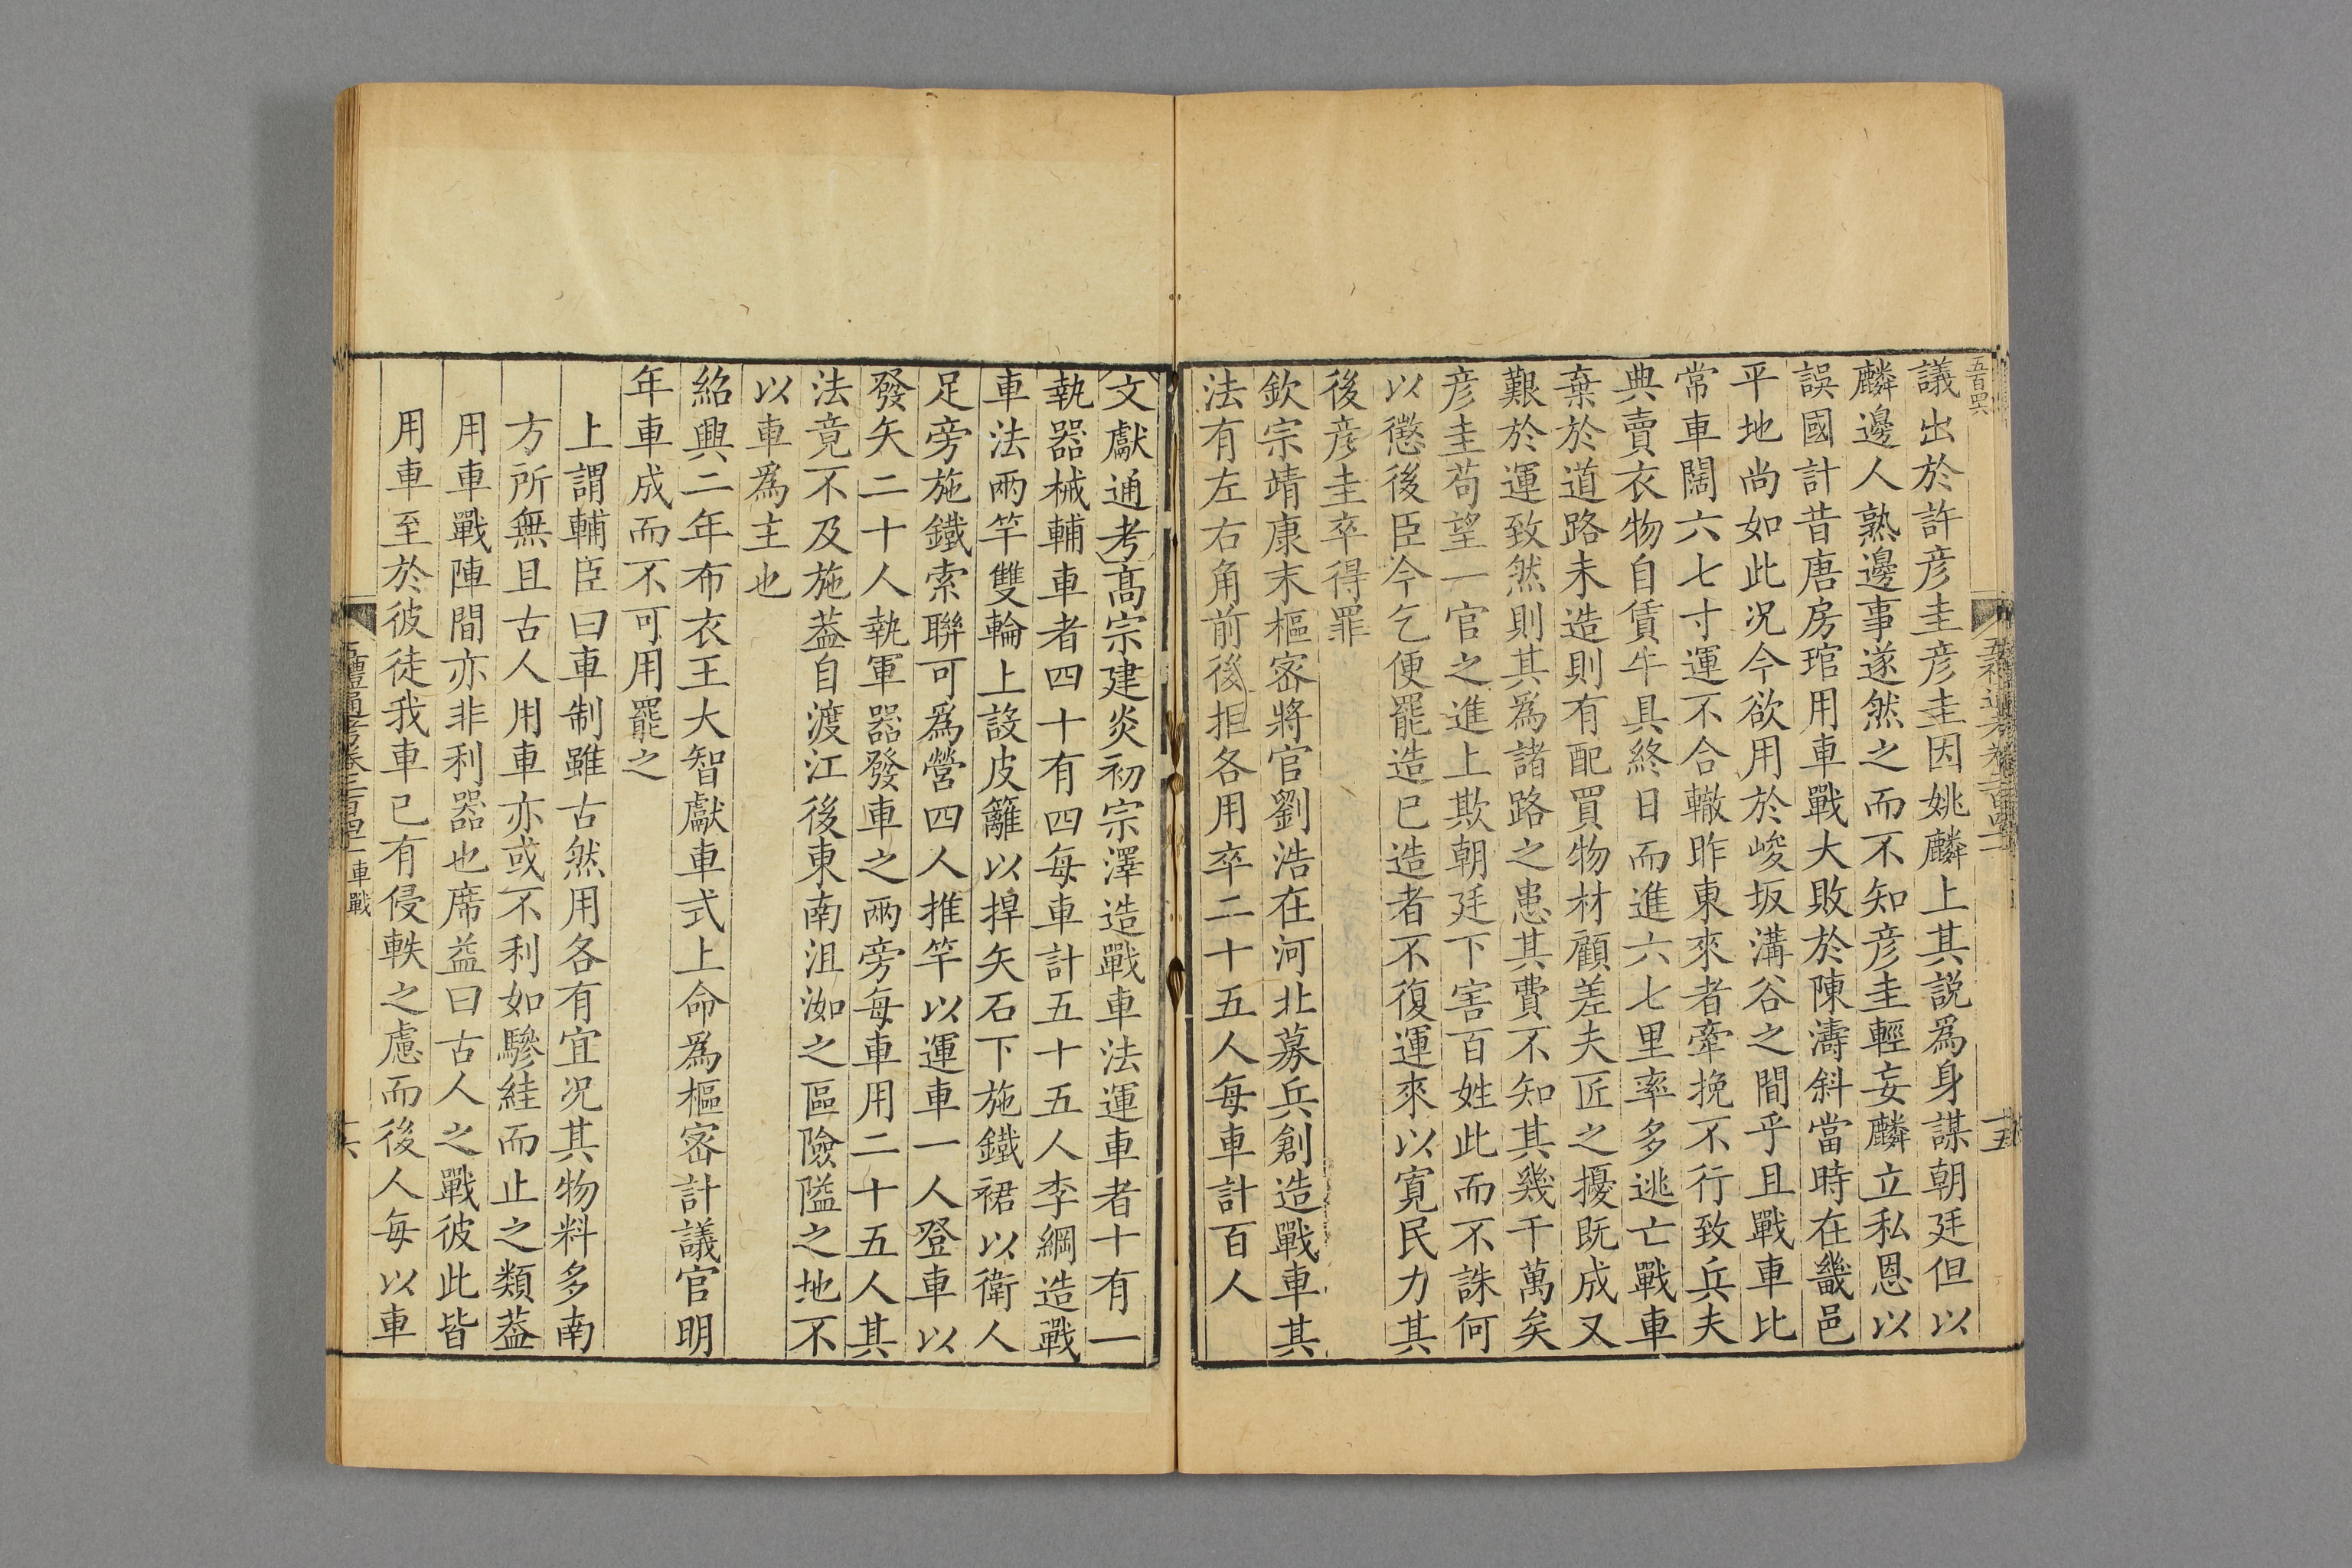 五百四
議出於許彦圭彦圭因姚麟上其説爲身謀朝廷但以
麟邊人熟邊事遂然之而不知彦圭輕妄麟立私恩以
誤國計昔唐房琯用車戰大敗於陳濤斜當時在畿邑
平地尚如此况今欲用於峻坂溝谷之間乎且戰車比
常車闊六七寸運不合轍昨東來者牽挽不行致兵夫
典賣衣物自賃牛具終日而進六七里率多逃亡戰車
棄於道路未造則有配買物材顧差夫匠之擾既成又
艱於運致然則其爲諸路之患其費不知其幾千萬矣
彦圭苟望一官之進上欺朝廷下害百姓此而不誅何
以懲後臣今乞便罷造已造者不復運來以寛民力其
後彦圭卒得罪
欽宗靖康末樞宻將官劉浩在河北募兵創造戰車其
法有左右角前後拒各用卒二十五人每車計百人
文獻通考高宗建炎初宗澤造戰車法運車者十有一
執器械輔車者四十有四每車計五十五人李綱造戰
車法兩竿雙輪上設皮籬以捍矢石下施鐵裙以衛人
足旁施鐵索聯可爲營四人推竿以運車一人登車以
發矢二十人執軍器發車之兩旁每車用二十五人其
法竟不及施葢自渡江後東南沮洳之區險隘之地不
以車爲主也
紹興二年布衣王大智獻車式上命爲樞宻計議官明
年車成而不可用罷之
上謂輔臣曰車制雖古然用各有宜况其物料多南
方所無且古人用車亦或不利如驂絓而止之類葢
用車戰陣間亦非利器也席益曰古人之戰彼此皆
用車至於彼徒我車已有侵軼之慮而後人每以車
車戰